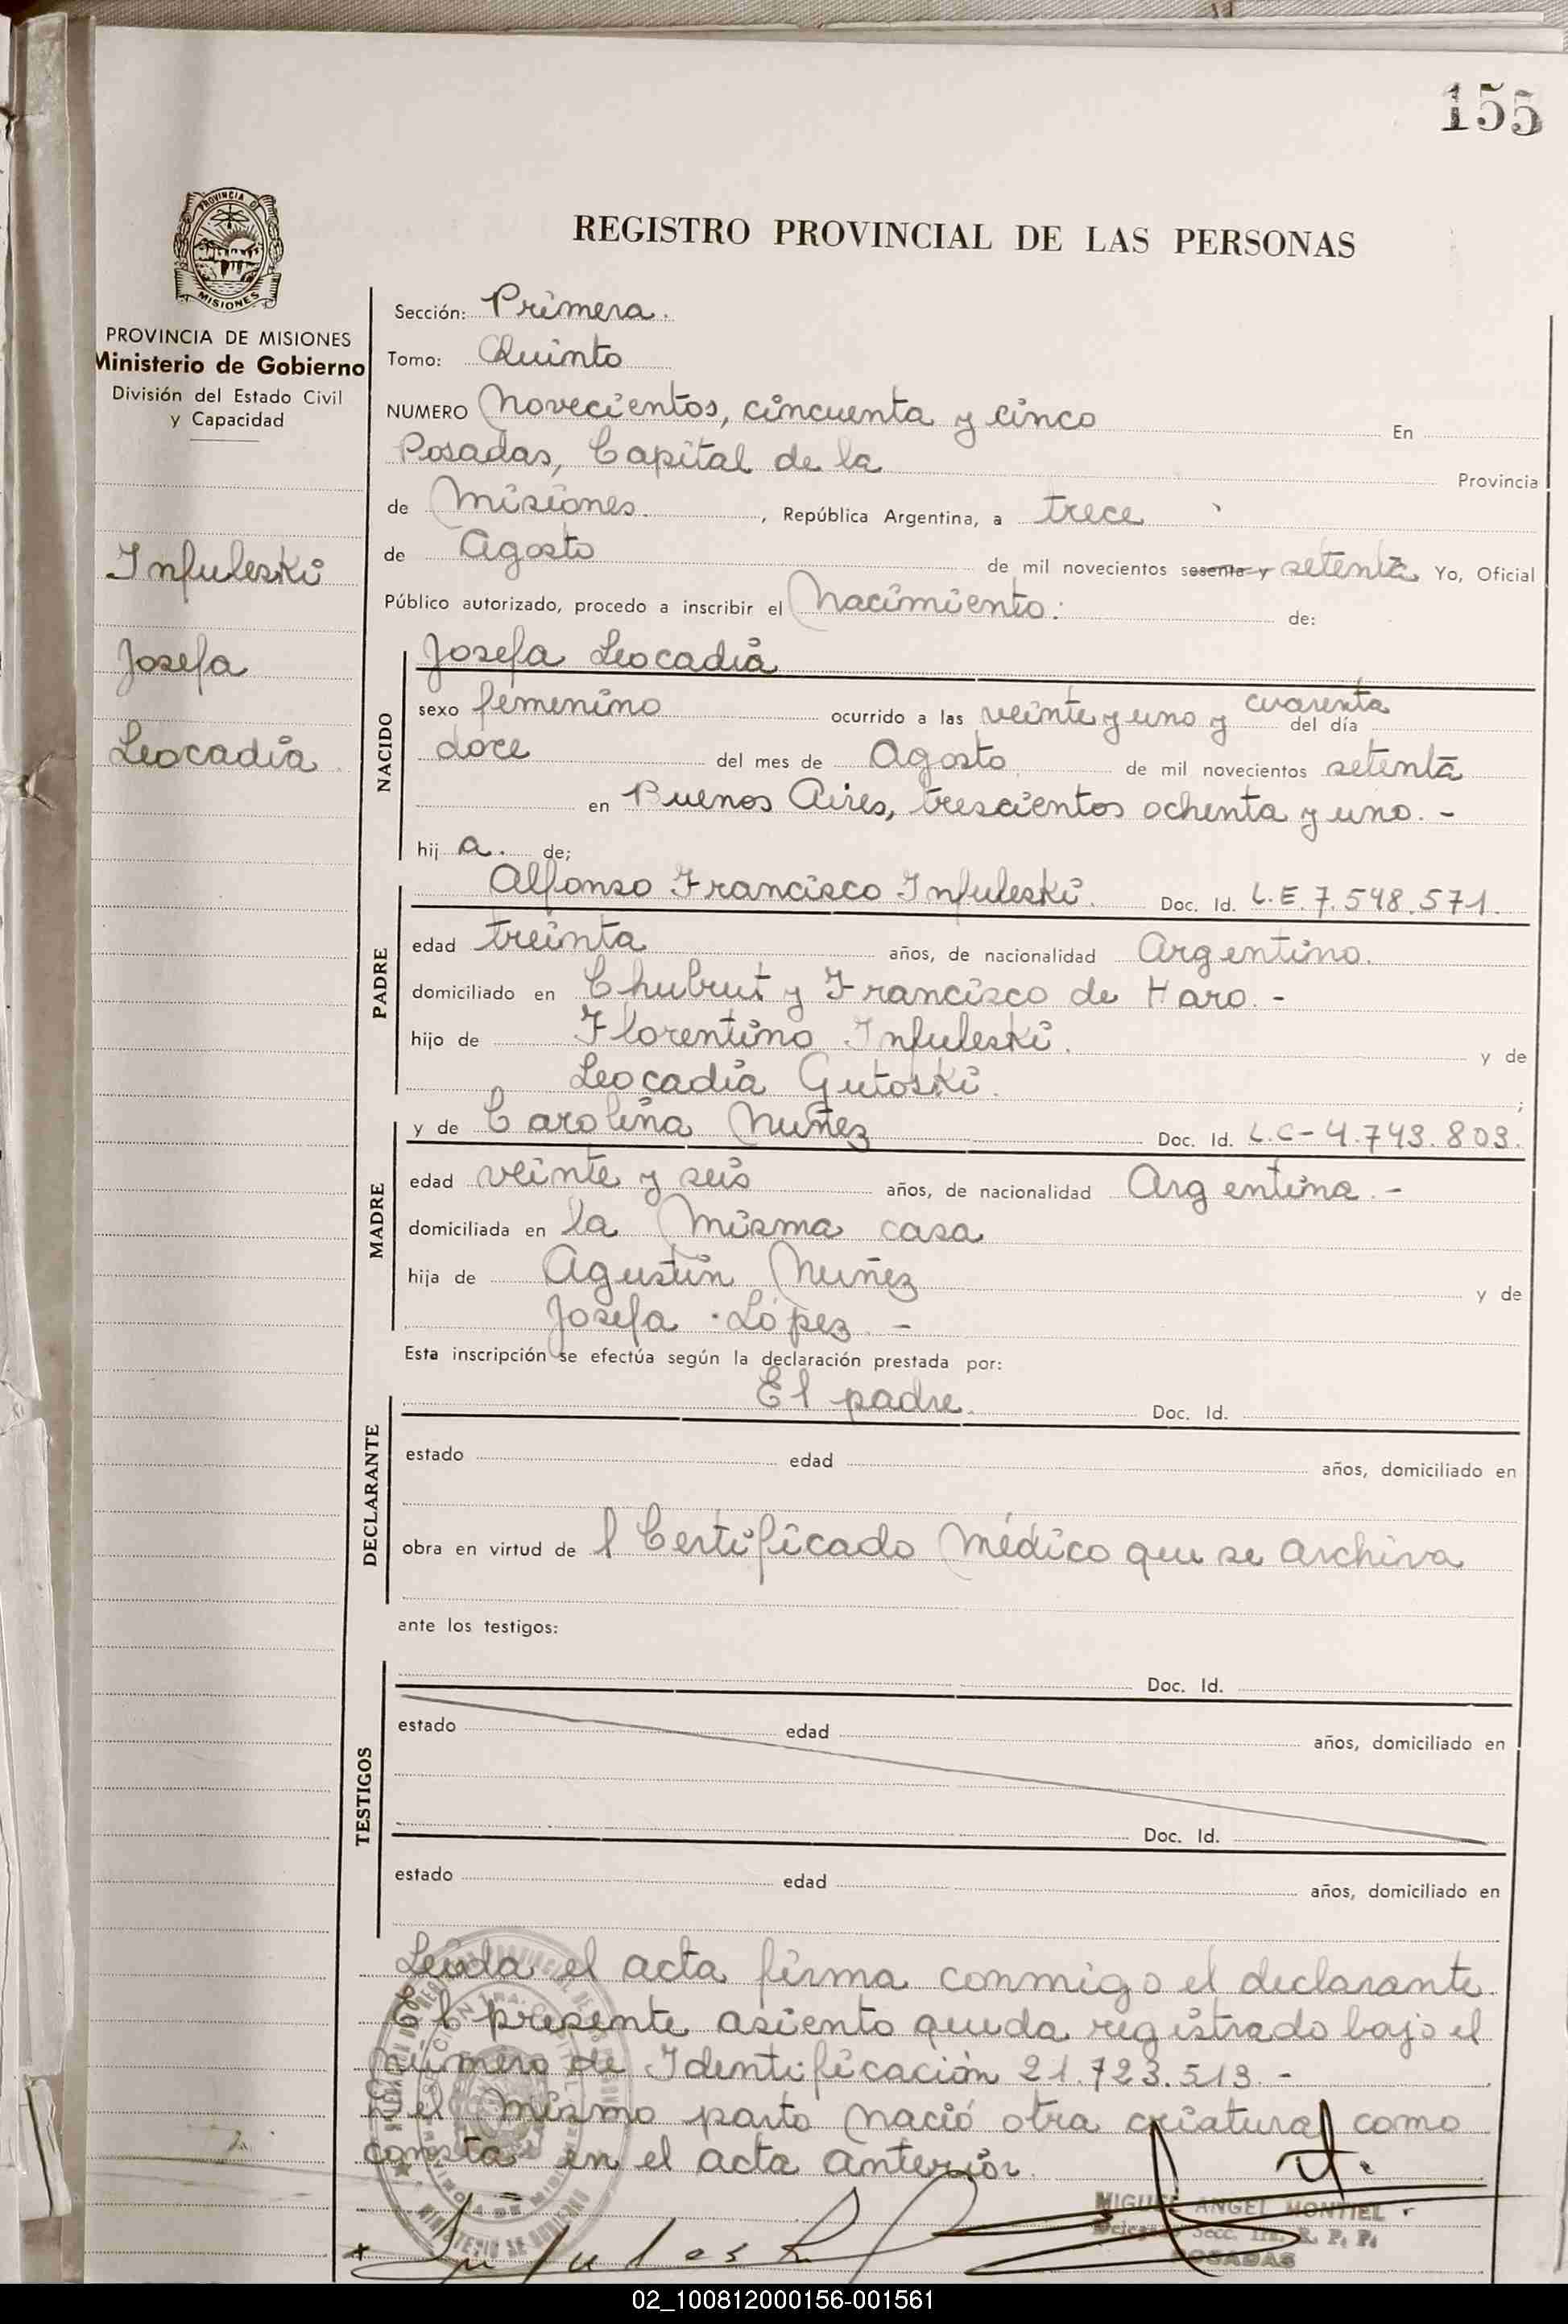 155
PROVINCIA DE
MISIONES
REGISTRO PROVINCIAL DE LAS PERSONAS
PROVINCIA DE MISIONES
Ministerio de Gobierno
División del Estado Civil
y Capacidad
Infuleski
Josefa
Leocadia
Sección: Primera.
Tomo: Quinto
NUMERO Novecientos, cincuenta y cinco En
Posadas, Capital de la Provincia
de Misiones. , República Argentina, a trece
de Agosto de mil novecientos sesenta y setenta Yo, Oficial
Público autorizado, procedo a inscribir el Nacimiento: de:
NACIDO
Josefa Leocadia
sexo femenino ocurrido a las veinte y uno y cuarenta del día
doce del mes de Agosto de mil novecientos setenta
en Buenos Aires, trescientos ochenta y uno. -
hij a. de;
PADRE
Alfonso Francisco Infuleski. Doc. Id. L.E. 7.548.571.
edad treinta años, de nacionalidad Argentino.
domiciliado en Chubut y Francisco de Haro. -
hijo de Florentino Infuleski. y de
Leocadia Gutoski. ;
MADRE
y de Carolina Nuñez Doc. Id. L.C- 4.743.803.
edad veinte y seis años, de nacionalidad Argentina. -
domiciliada en la misma casa
hija de Agustín Nuñez y de
Josefa López. -
Esta inscripción se efectúa según la declaración prestada por:
DECLARANTE
El padre. Doc. Id.
estado edad años, domiciliado en
obra en virtud de l Certificado Médico que se archiva
ante los testigos:
TESTIGOS
Doc. Id.
estado edad años, domiciliado en
Doc. Id.
estado edad años, domiciliado en
Leída el acta firma conmigo el declarante.
El presente asiento queda registrado bajo el
número de Identificación 21.723.513. -
Del mismo parto nació otra criatura como
consta en el acta anterior.
Infuleski
MIGUEL ANGEL MONTIEL
Secc. 1ra. R. P. P.
POSADAS
02_100812000156-001561